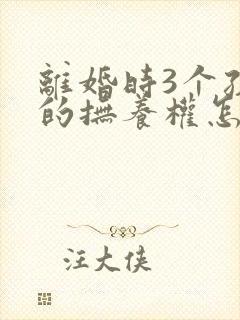 離婚時3个
的撫養權怎
汪大侠